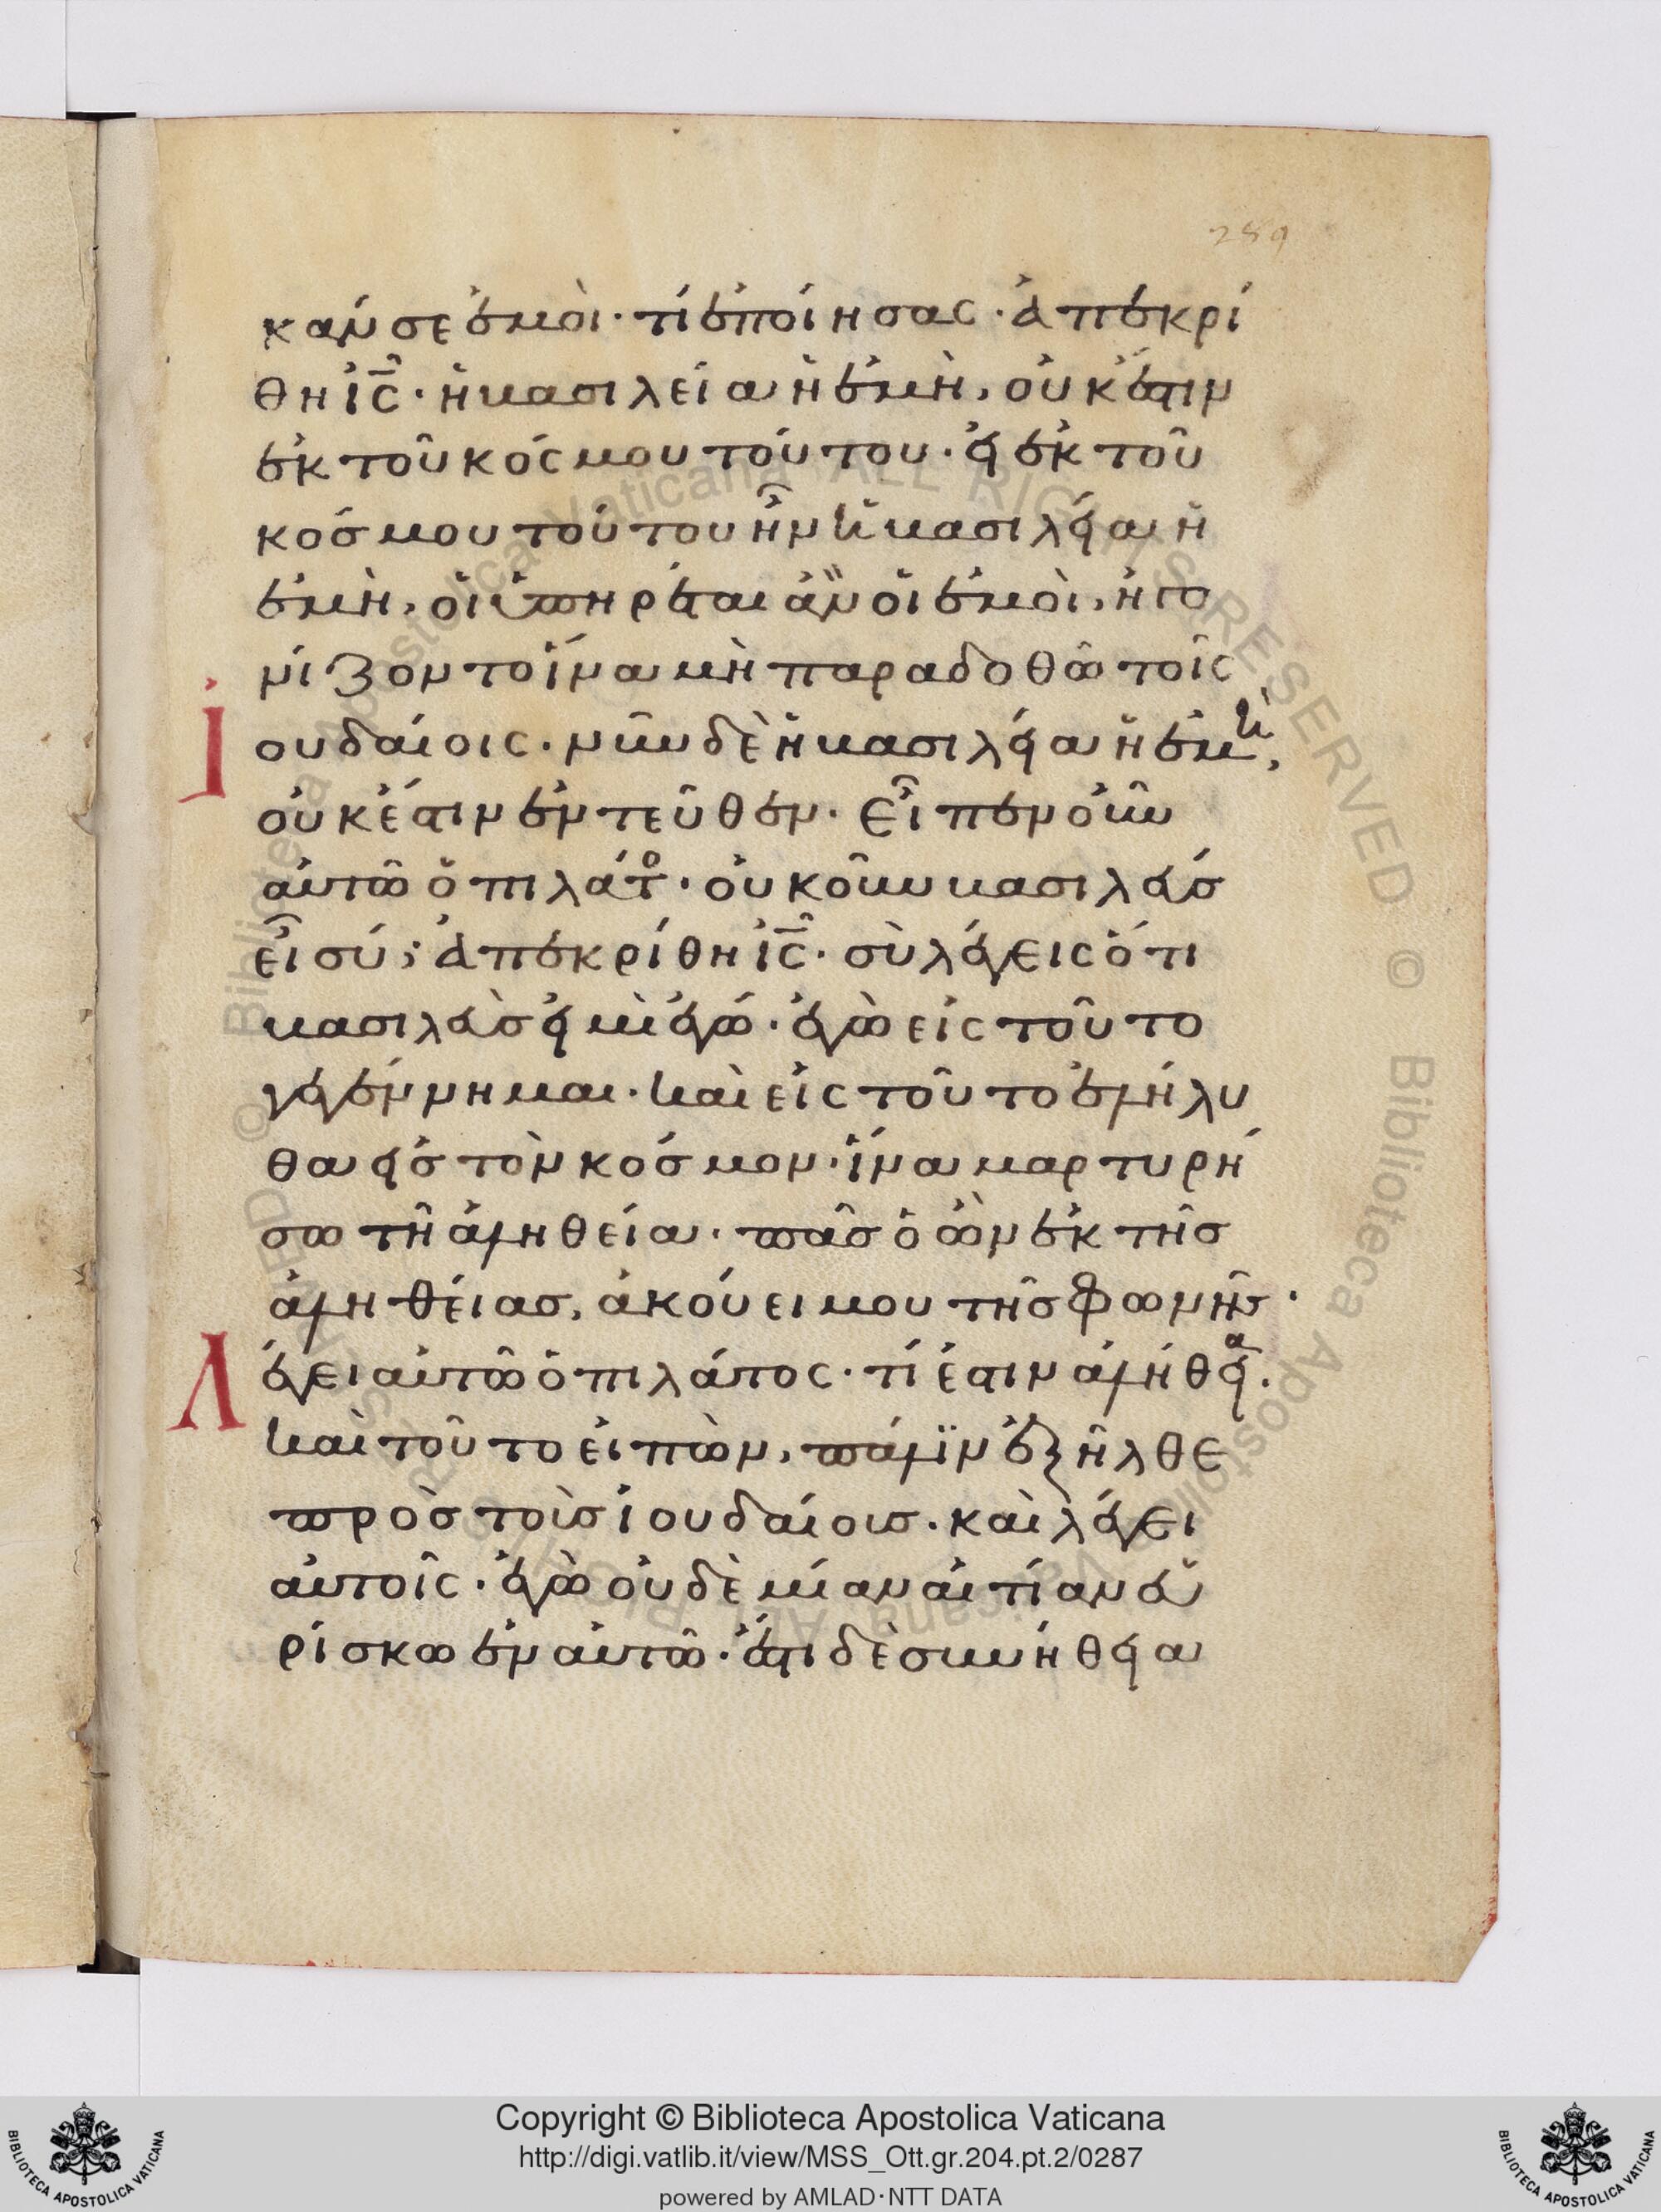 289
κάν σε ἐμοὶ· τί ἐποίησας· ἀπεκρί
θη ἰ̅ς̅· ἡ βασιλεία ἡ ἐμὴ, οὐκ ἔστιν
ἐκ τοῦ κόσμου τούτου· εἰ ἐκ τοῦ
κόσμου τούτου ἦν ἡ βασιλεία ἡ
ἐμὴ, οἱ ὑπηρέται ἂν οἱ ἐμοὶ, ἠγω
νίζοντο ἵνα μὴ παραδοθῶ τοῖς
Ἰουδαίοις· νῦν δὲ ἡ βασιλεία ἡ ἐμὴ,
οὐκ ἔστιν ἐντεῦθεν· Εἶπεν οὖν
αὐτῶ ὁ πιλάτο· οὐκοῦν βασιλεύς
εἶ σύ; ἀπεκρίθη ἰ̅ς̅· σὺ λέγεις ὅτι
βασιλεὺς εἰμὶ ἐγώ· ἐγὼ εἰς τοῦτο
γεγέννημαι· καὶ εἰς τοῦτο ἐλήλυ
θα εἰς τὸν κόσμον· ἵνα μαρτυρή
σω τῆ ἀληθεία· πᾶς ὁ ὢν ἐκ τῆς
ἀληθείας, ἀκούει μου τῆς φωνῆς·
Λέγει αὐτῶ ὁ πιλάτος· τί ἐστιν ἀλήθεια.
καὶ τοῦτο εἰπὼν, πάλϊν ἐξῆλθε
πρὸς τοὺς ἰουδαίοις· καὶ λέγει
αὐτοῖς· ἐγὼ οὐδὲ μίαν αἰτίαν εὑ
ρίσκω ἐν αὐτῶ· ἔστι δὲ συνήθεια
Copyright © Biblioteca Apostolica Vaticana
http://digi.vatlib.it/view/MSS_Ott.gr.204.pt.2/0287
powered by AMLAD·NTT DATA
BIBLIOTECA APOSTOLICA VATICANA
BIBLIOTECA APOSTOLICA VATICANA